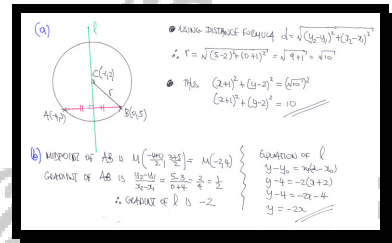 (a)
l
C(-1,2)
r
A(-4,3)
B(0,5)
● USING DISTANCE FORMULA d = √((y₂-y₁)²+(x₂-x₁)²)
∴ r = √((5-2)²+(0+1)²) = √(9+1) = √10
● THUS (x+1)²+(y-2)² = (√10)²
(x+1)²+(y-2)² = 10
(b) MIDPOINT OF AB IS M(-4+0/2, 3+5/2) = M(-2,4)
GRADIENT OF AB IS y₂-y₁/x₂-x₁ = 5-3/0+4 = 2/4 = 1/2
∴ GRADIENT OF l IS -2
EQUATION OF l
y-y₀ = m(x-x₀)
y-4 = -2(x+2)
y-4 = -2x-4
y = -2x